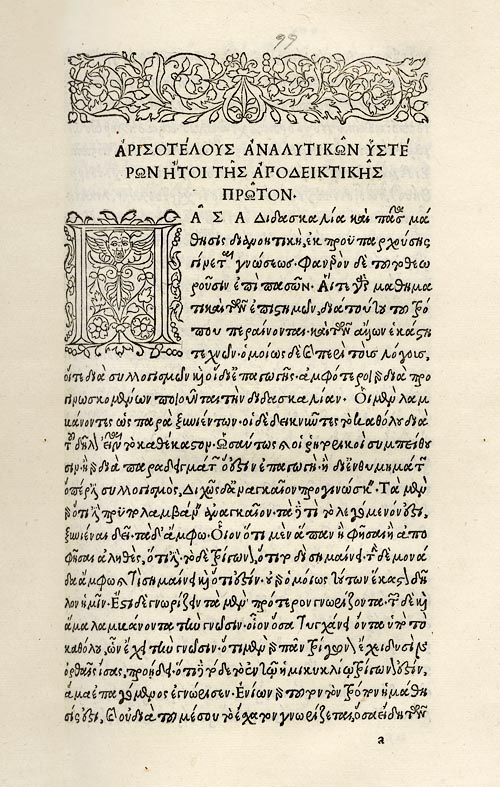 99
ἈΡΙΣΟΤΕΛΟΥΣ ἈΝΑΛΥΤΙΚῶΝ ὙΣΤΕ
ΡΩΝ ἬΤΟΙ ΤΗ͂Σ ἈΠΟΔΕΙΚΤΙΚΗ͂Σ
ΠΡΩ͂ΤΟΝ·
Πᾶ͂ΣΑ Διδασκαλία καὶ πᾶσα μά
θησις διανοητικὴ, ἐκ προϋπαρχούσης
γίνεται γνώσεως· Φανερὸν δὲ τοῦτο θεω
ροῦσιν ἐπὶ πασῶν· Αἵ τε γὰρ μαθημα
τικαὶ τῶν ἐπιστημῶν, διὰ τούτου τοῦ τρό
που περαίνονται· καὶ τῶν ἄλλων ἑκάστη
τεχνῶν· ὁμοίως δὲ καὶ περὶ τοὺς λόγους,
οἵ τε διὰ συλλογισμῶν καὶ οἱ δι' ἐπαγωγῆς· ἀμφότεροι γὰρ διὰ προ
γινωσκομένων ποιοῦνται τὴν διδασκαλίαν· Οἱ μὲν λαμ
βάνοντες ὡς παρὰ ξυνιέντων· οἱ δὲ δεικνῦντες τὸ καθόλου διὰ
τοῦ δῆλον εἶναι τὸ καθέκαστον· Ὡσαύτως καὶ οἱ ῥητορικοὶ συμπείθου
σιν· ἢ γὰρ διὰ παραδειγμάτων ὅ ἐστιν ἐπαγωγὴ· ἢ δι' ἐνθυμημάτων
ὅπερ ἐστὶ συλλογισμὸς, Διχῶς δ' ἀναγκαῖον προγινώσκειν· Τὰ μὲν
γὰρ ὅτι ἔστι προϋπολαμβάνειν ἀναγκαῖον· τὰ δὲ τί τὸ λεγόμενόν ἐστι,
ξυνιέναι δεῖ· τὰ δ' ἄμφω· Οἷον ὅτι μὲν ἅπαν ἢ φῆσαι ἢ ἀπο
φῆσαι ἀληθὲς, ὅτι ἔστι· τὸ δὲ τρίγωνον, ὅτι τοδὶ σημαίνει· τὴν δὲ μονά
δα ἄμφω καὶ τί σημαίνει καὶ ὅτι ἔστιν· οὐ γὰρ ὁμοίως τούτων ἕκαστον δῆ
λον ἡμῖν· Ἔστι δὲ γνωρίζειν τὰ μὲν πρότερον γνωρίζοντα· τῶν δὲ καὶ
ἅμα λαμβάνοντα τὴν γνῶσιν· οἷον ὅσα τυγχάνει ὄντα ὑπὸ τὸ
καθόλου, ὧν ἔχει τὴν γνῶσιν· ὅτι μὲν γὰρ πᾶν τρίγωνον ἔχει δυσὶν
ὀρθαῖς ἴσας, προῄδει· ὅτι δὲ τόδε τὸ ἐν τῷ ἡμικυκλίῳ τρίγωνόν ἐστιν,
ἅμα ἐπαγόμενος ἐγνώρισεν· Ἐνίων γὰρ τοῦτον τὸν τρόπον ἡ μάθη
σίς ἐστι, καὶ οὐ διὰ τοῦ μέσου τὸ ἔσχατον γνωρίζεται, ὅσα ἤδη τῶν
a